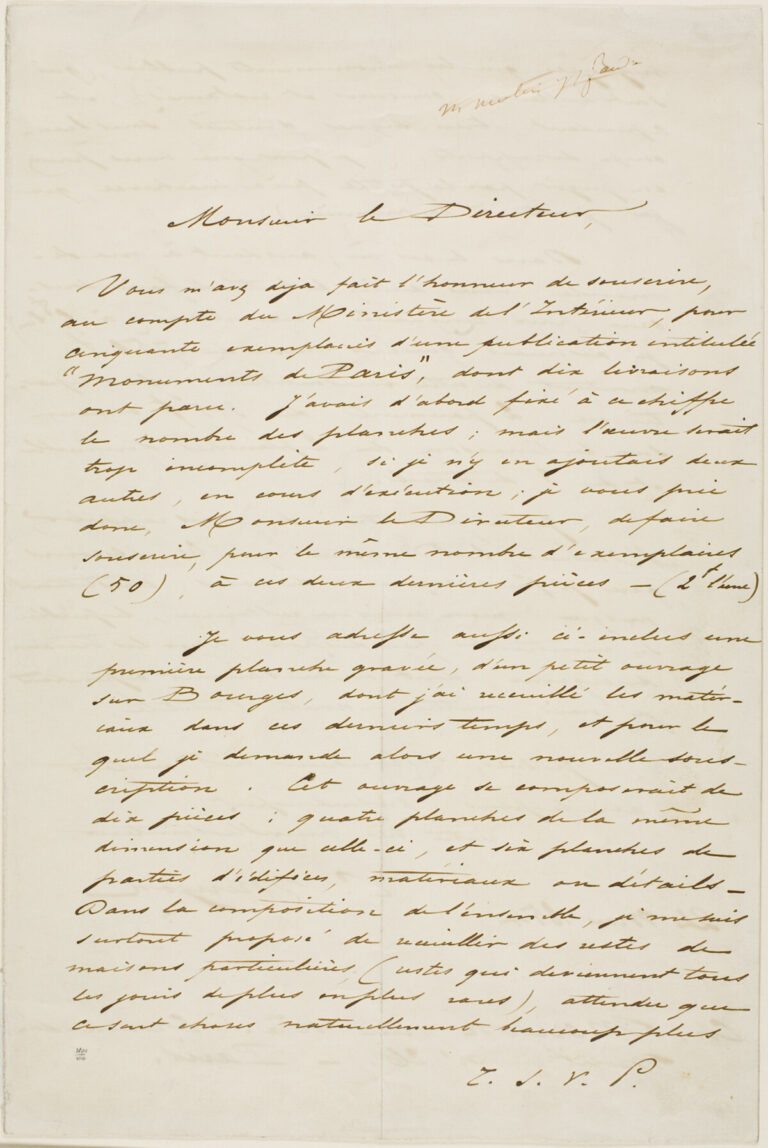 Monsieur le Directeur,
Vous m'avez déja fait l'honneur de souscrire,
au compte du Ministère de l'Intérieur, pour
cinquante exemplaires d'une publication intitulée
"Monuments de Paris", dont dix livraisons
ont paru. J'avais d'abord fixé à ce chiffre
le nombre des planches; mais l'œuvre serait
trop incomplète, si je n'y en ajoutais deux
autres, en cours d'exécution; je vous prie
donc, Monsieur le Directeur, de faire
souscrire, pour le même nombre d'exemplaires
(50), à ces deux dernières pièces — (2f l'une)
Je vous adresse aussi ci-inclus une
première planche gravée, d'un petit ouvrage
sur Bourges, dont j'ai recueilli les matér-
iaux dans ces derniers temps, et pour le
quel je demande alors une nouvelle sous-
cription. Cet ouvrage se composerait de
dix pièces: quatre planches de la même
dimension que celle-ci, et six planches de
parties d'édifices, matériaux ou détails —
Dans la composition de l'ensemble, je me suis
surtout proposé de recueillir des restes de
maisons particulières (restes qui deviennent tous
les jours de plus en plus rares), attendu que
ce sont choses naturellement beaucoup plus
T. S. V. P.